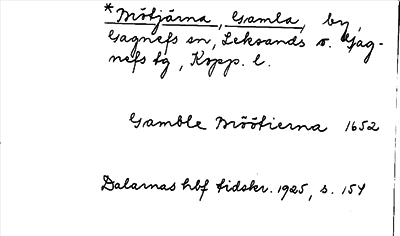 *Mötjärna, Gamla, by,
Gagnefs sn, Leksands o. Gag-
nefs tg, Kopp. l.
Gamble Möötierna 1652
Dalarnas hbf tidskr. 1925, s. 154